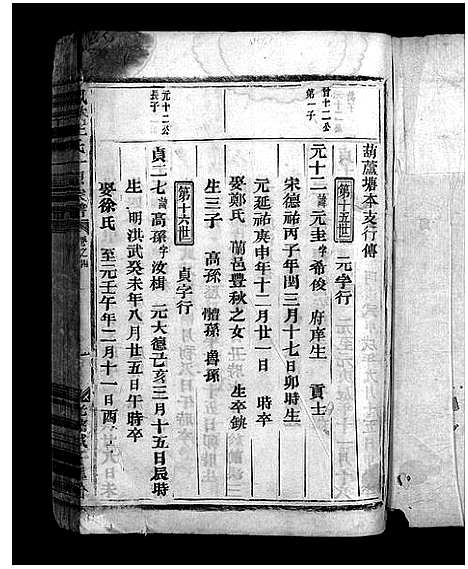 葫蘆塘本支行傳
第十五世 元字行
廿十二公第一子
元十二 諱元圭字希俊 府庠生 貢士
宋德祐丙子年閏三月十七日卯時生
元延祐庚申年十二月廿一日 時卒
娶鄭氏 蘭邑豐秋之女 生卒缺
生三子 高孫 體孫 魯孫
第十六世 貞字行
元十二公長子
貞二七 諱高孫字汝楫 元大德己亥三月十五日辰時
生 明洪武癸未年八月廿五日午時卒
娶徐氏 至元壬午年二月十一日酉